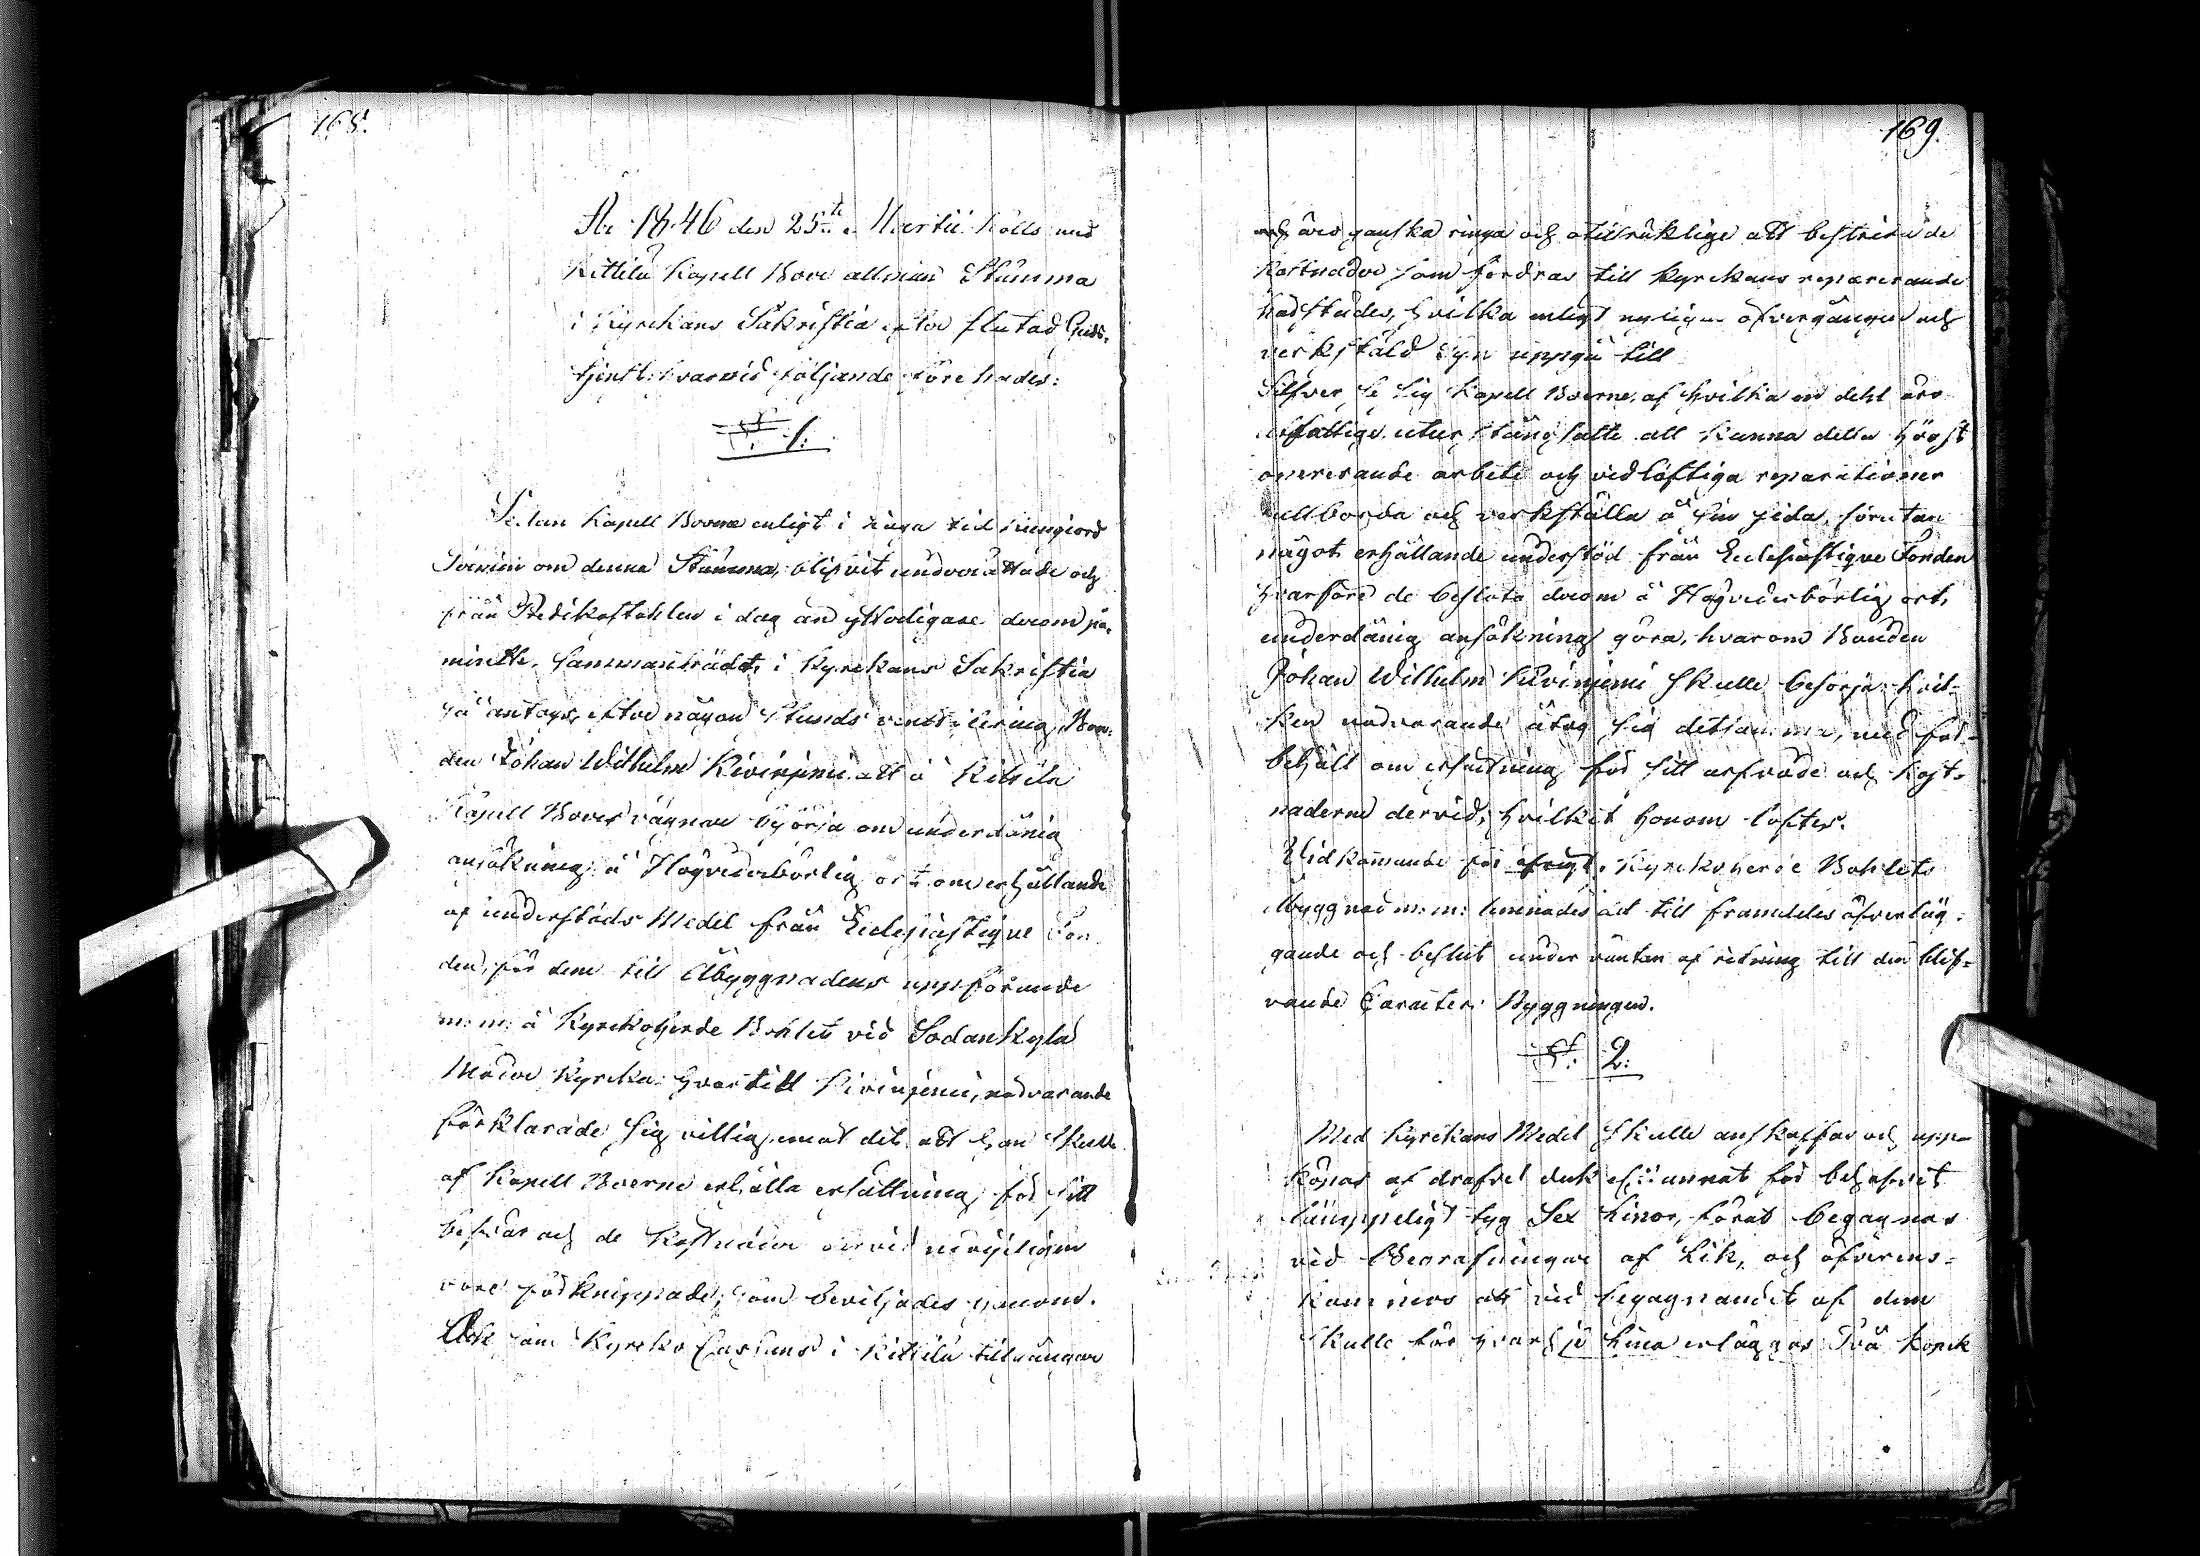 168.
År 1846 den 25te Martii hölls med
Kittilä Kapell Boer allmän Stämma
i Kyrckans Sakristia efter slutad Guds-
tjenst: hvarvid följande förehades:
§. 1.
Sedan Kapell Boerne enligt i laga tid kungjord
om denna Stämma, blifvit underrättade och
från Predikostohlen i dag än ytterligare derom på-
minte, sammanträdt i Kyrckans Sakristia
så antogs, efter någon Stunds ventilering, Bon-
den Johan Wilhelm Kivinjemi att å Kittilä
Kapell Boers vägnar besörja om underdånig
ansökning å Högvederbörlig ort om erhållande
af understöds Medel från Eclesiastique Fon-
den, för dem till Åbyggnadens uppförande
m: m: å Kyrckoherde Bohlet vid Sodankylä
Moder Kyrcka: hvartill Kivinjemi, närvarande
förklarade sig villig, emot det att han skulle
af Kapell Boerne erhålla ersättning för sitt
besvär och de kostnader dervid
vore förknippade; som beviljades honom.
som Kyrcko Cassans i Kittilä tillgångar
169.
och äro ganska ringa och otillräklige att bestrida de
kostnader som fordras till Kyrckans reparerande
härstädes, hvilka enligt nyligen öfvergången och
verkstäld Syn uppgå till
Silfver, se sig Kapell Boerne, af hvilka en dehl äro
utfattige, utur stånd satte att kunna detta högst
onererande arbete och vidlöftiga reparationer
fullborda och verkställa å sin sida, förutan
något erhållande understöd från Eclesiastique Fonden
hvarföre de besluta derom å Högvederbörlig ort,
underdånig ansökning göra, hvarom Bonden
Johan Wilhelm Kivinjemi skulle besörja: hvil-
ken närvarande åtog sig detsamma, med för-
behåll om ersättning för sitt arfvode och kost-
naderne dervid, hvilket honom loftes.
Vidkommande för öfrigt Kyrckoherde Bohlets
Åbyggnad m: m: lemnades det till framdeles öfverläg-
gande och beslut under väntan af ritning till den blif-
vande Caracters Byggningen.
§. 2.
Med Kyrckans Medel skulle anskaffas och upp-
köpas af drafvel duk eller annat för behofvet
lämppeligt tyg Sex Linor, förat begagnas
vid Begrafningar af Lik, och öfverens-
kommes att vid begagnandet af dem
skulle för hvarje Lina erläggas Två kopek